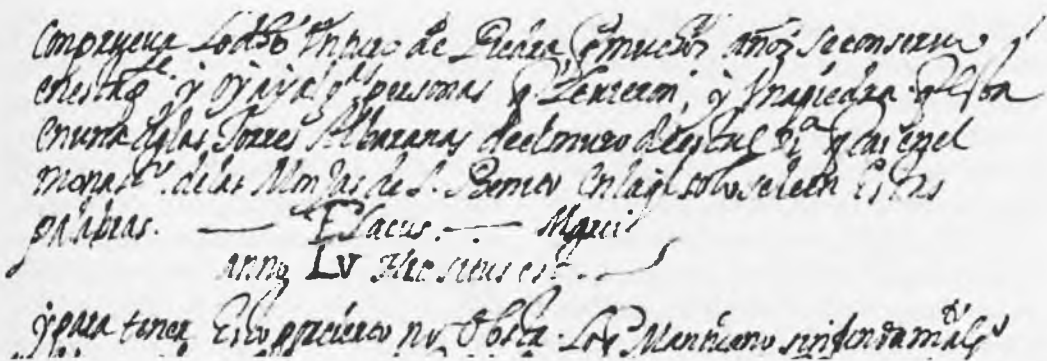 Comprueua Lo dho Un pozo de Piedra, q muchos años se conseruo
en esta y oy ay alg.s personas q Leyeron, y Una piedra q esta
en una de las Torres Albaranas de el muro de esta y cae en el
monast.o de las Monjas de S. Benito en la ql solo se leen Estas
palabras. — ESacus. — Marci
anno LV Hic situs est. —
y para tener Esto por cierto no Obsta Lo q Marineo sin fundam.to